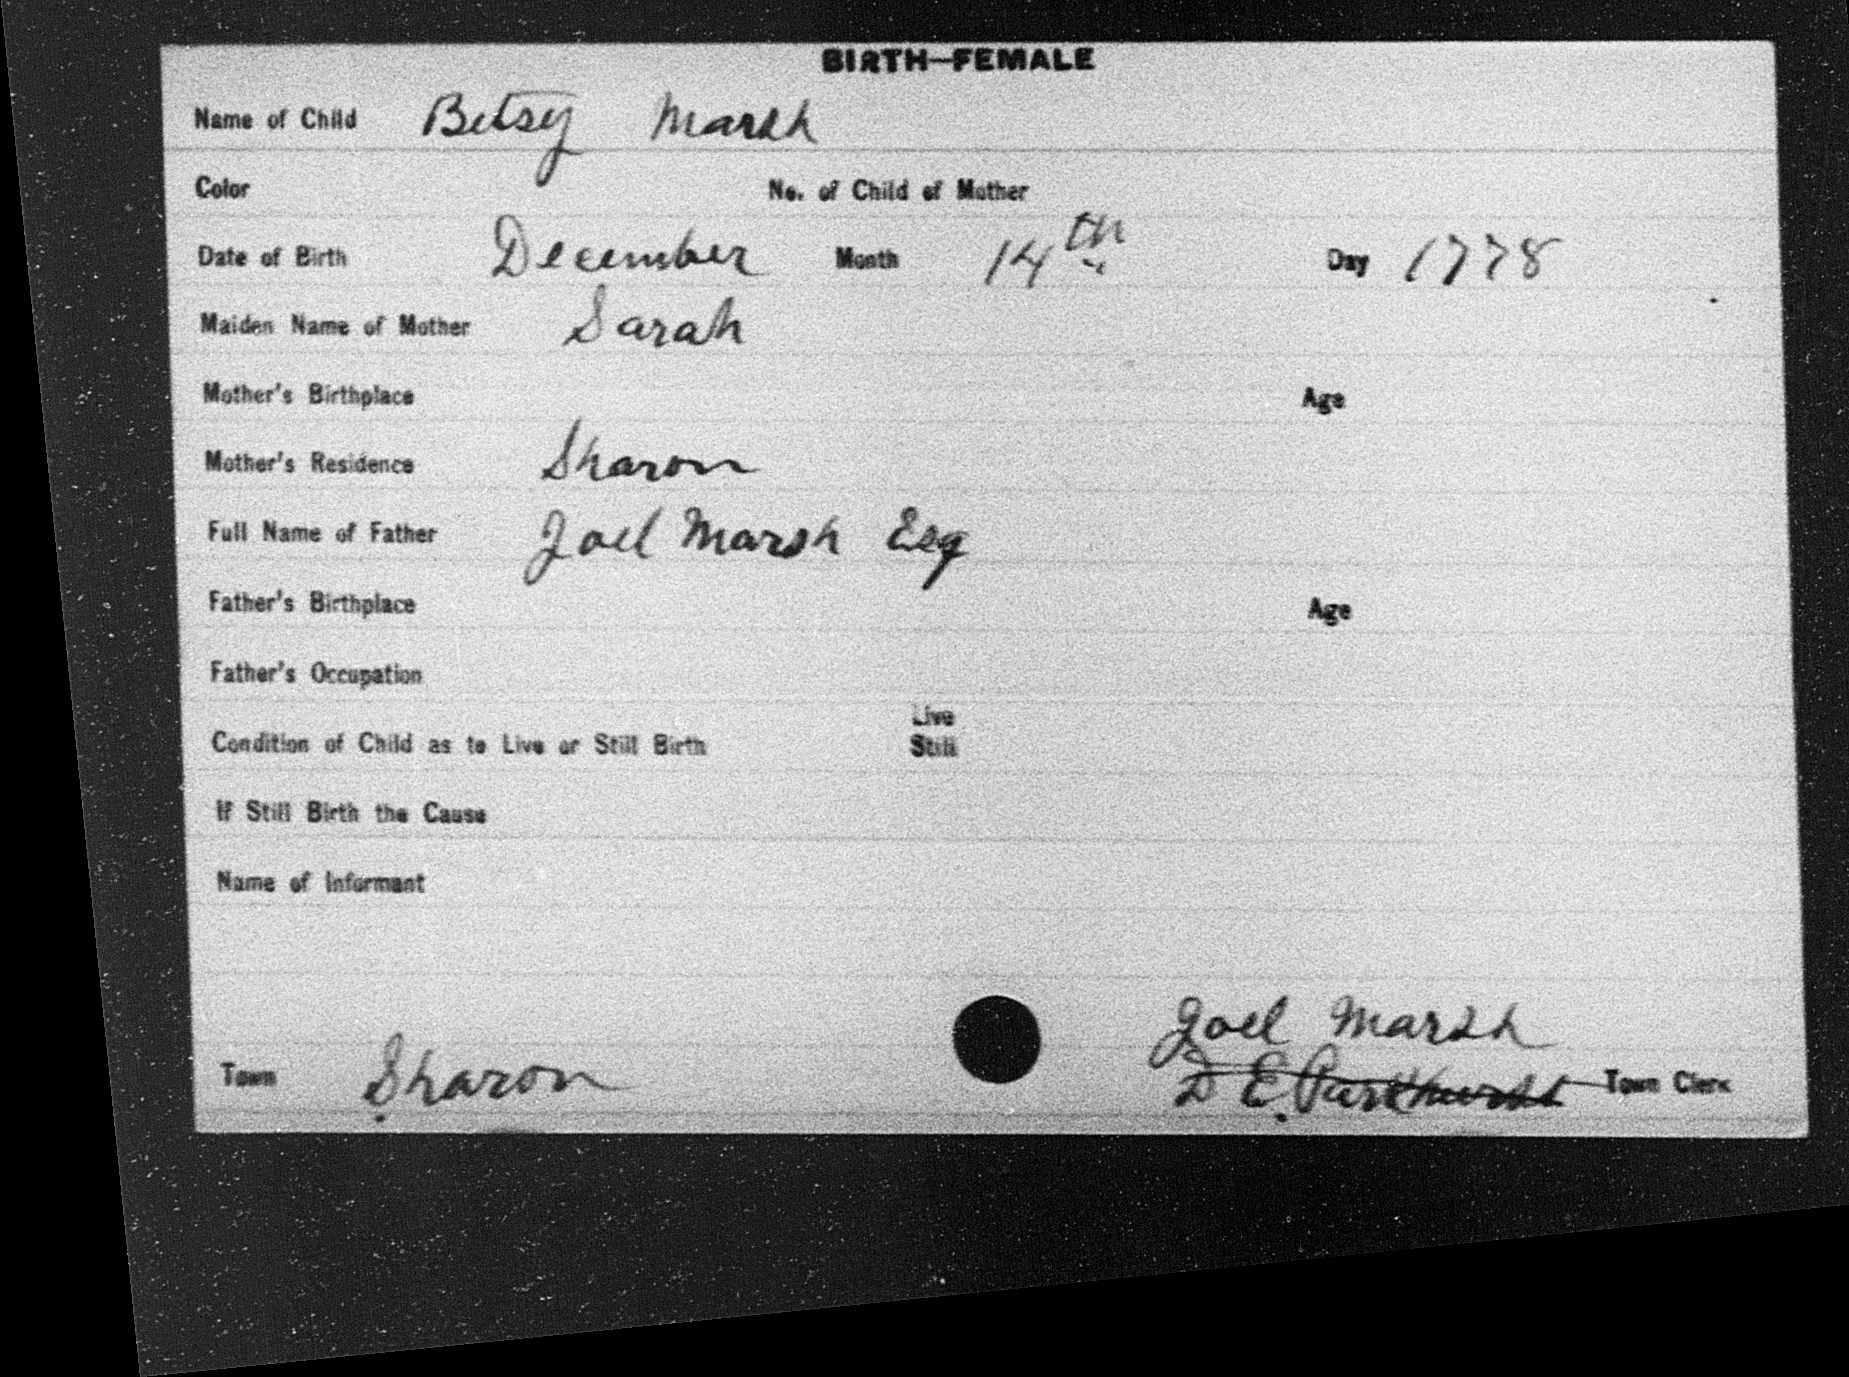 BIRTH—FEMALE
Name of Child Betsy Marsh
Color No. of Child of Mother
Date of Birth December Month 14th Day 1778
Maiden Name of Mother Sarah
Mother's Birthplace Age
Mother's Residence Sharon
Full Name of Father Joel Marsh Esq
Father's Birthplace Age
Father's Occupation
Live
Condition of Child as to Live or Still Birth Still
If Still Birth the Cause
Name of Informant
Joel Marsh
Town Sharon D E. Parkhurst Town Clerk